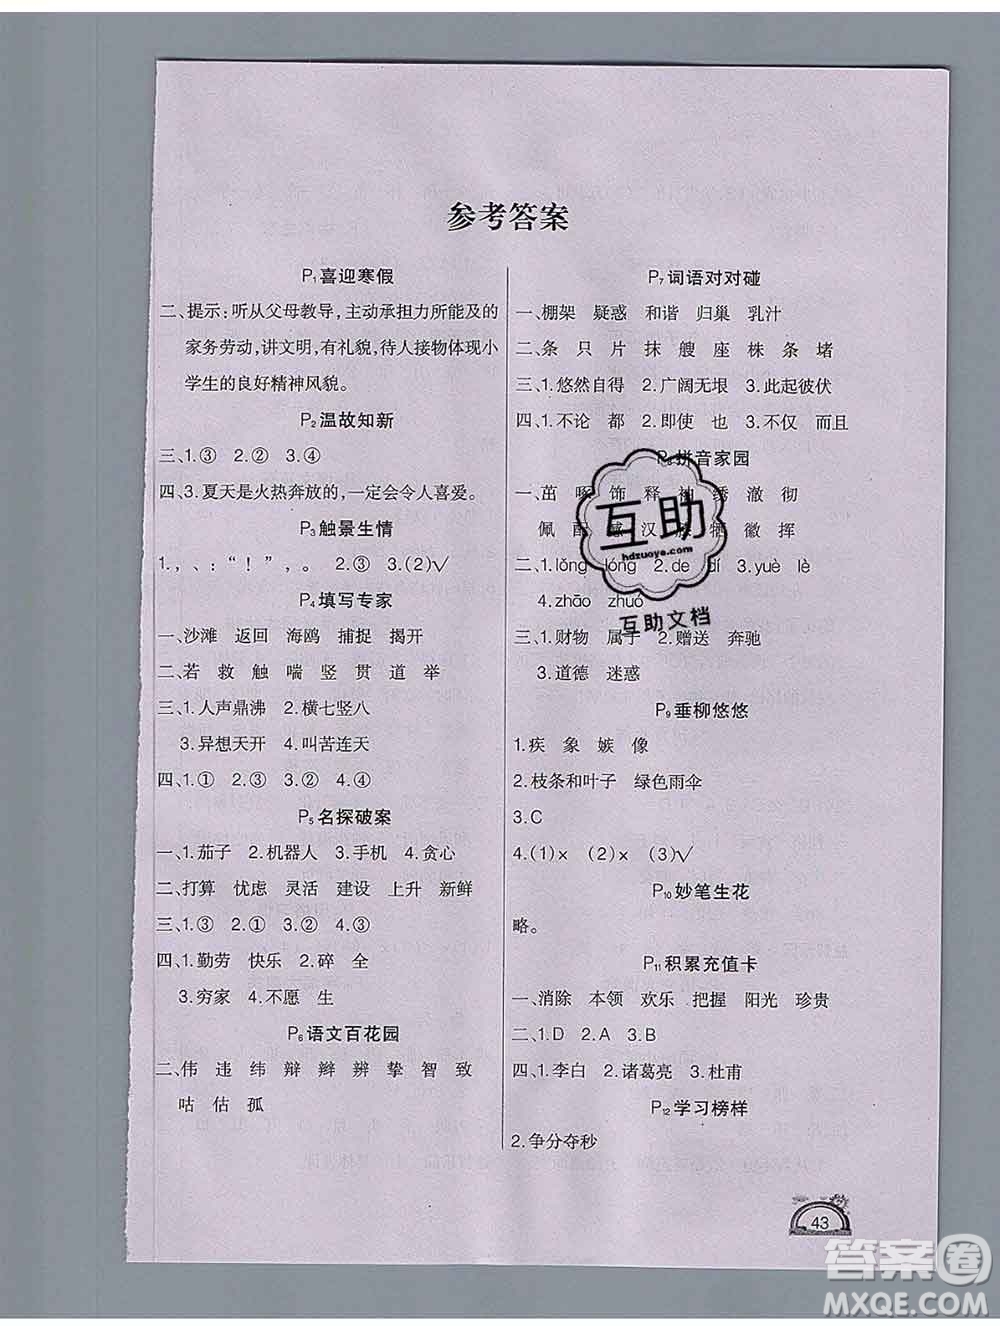 参考答案
P1喜迎寒假
二、提示:听从父母教导,主动承担力所能及的
家务劳动,讲文明,有礼貌,待人接物体现小
学生的良好精神风貌。
P2温故知新
三、1.③ 2.② 3.④
四、3.夏天是火热奔放的,一定会令人喜爱。
P3触景生情
1.,、:“!”,。 2.③ 3.(2)√
P4填写专家
一、沙滩 返回 海鸥 捕捉 揭开
二、若 救 触 喘 竖 贯 道 举
三、1.人声鼎沸 2.横七竖八
3.异想天开 4.叫苦连天
四、1.① 2.③ 3.② 4.④
P5名探破案
一、1.茄子 2.机器人 3.手机 4.贪心
二、打算 忧虑 灵活 建设 上升 新鲜
三、1.③ 2.① 3.② 4.③
四、1.勤劳 快乐 2.碎 全
3.穷家 4.不愿 生
P6语文百花园
二、伟 违 纬 辩 辫 辨 挚 智 致
咕 估 孤
P7词语对对碰
一、棚架 疑惑 和谐 归巢 乳汁
二、条 只 片 抹 艘 座 株 条 堵
三、1.悠然自得 2.广阔无垠 3.此起彼伏
四、1.不论 都 2.即使 也 3.不仅 而且
P8拼音家园
一、茁 啄 饰 释 袖 绣 澈 彻
佩 配 憾 汉 牺 徽 挥
二、1.lǒng lóng 2.de dí 3.yuè lè
4.zhāo zhuó
三、1.财物 属于 2.赠送 奔驰
3.道德 迷惑
P9垂柳悠悠
1.疾 象 嫉 像
2.枝条和叶子 绿色雨伞
3.C
4.(1)× (2)× (3)√
P10妙笔生花
略。
P11积累充值卡
一、消除 本领 欢乐 把握 阳光 珍贵
二、1.D 2.A 3.B
四、1.李白 2.诸葛亮 3.杜甫
P12学习榜样
2.争分夺秒
43
互助
hdzuoye.com
互助文档
答案圈
MXQE.COM